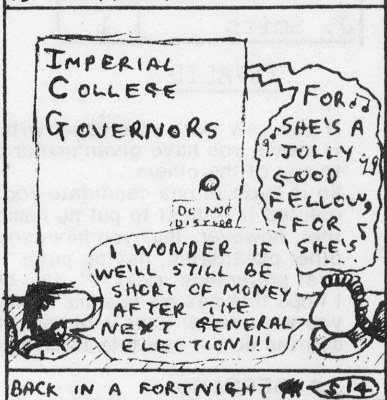 IMPERIAL
COLLEGE
GOVERNORS
FOR
SHE'S A
JOLLY
GOOD
FELLOW,
SHE'S
DO NOT
I WONDER IF
WE'LL STILL BE
SHORT OF MONEY
AFTER THE
NEXT GENERAL
ELECTION!!!
BACK IN A FORTNIGHT